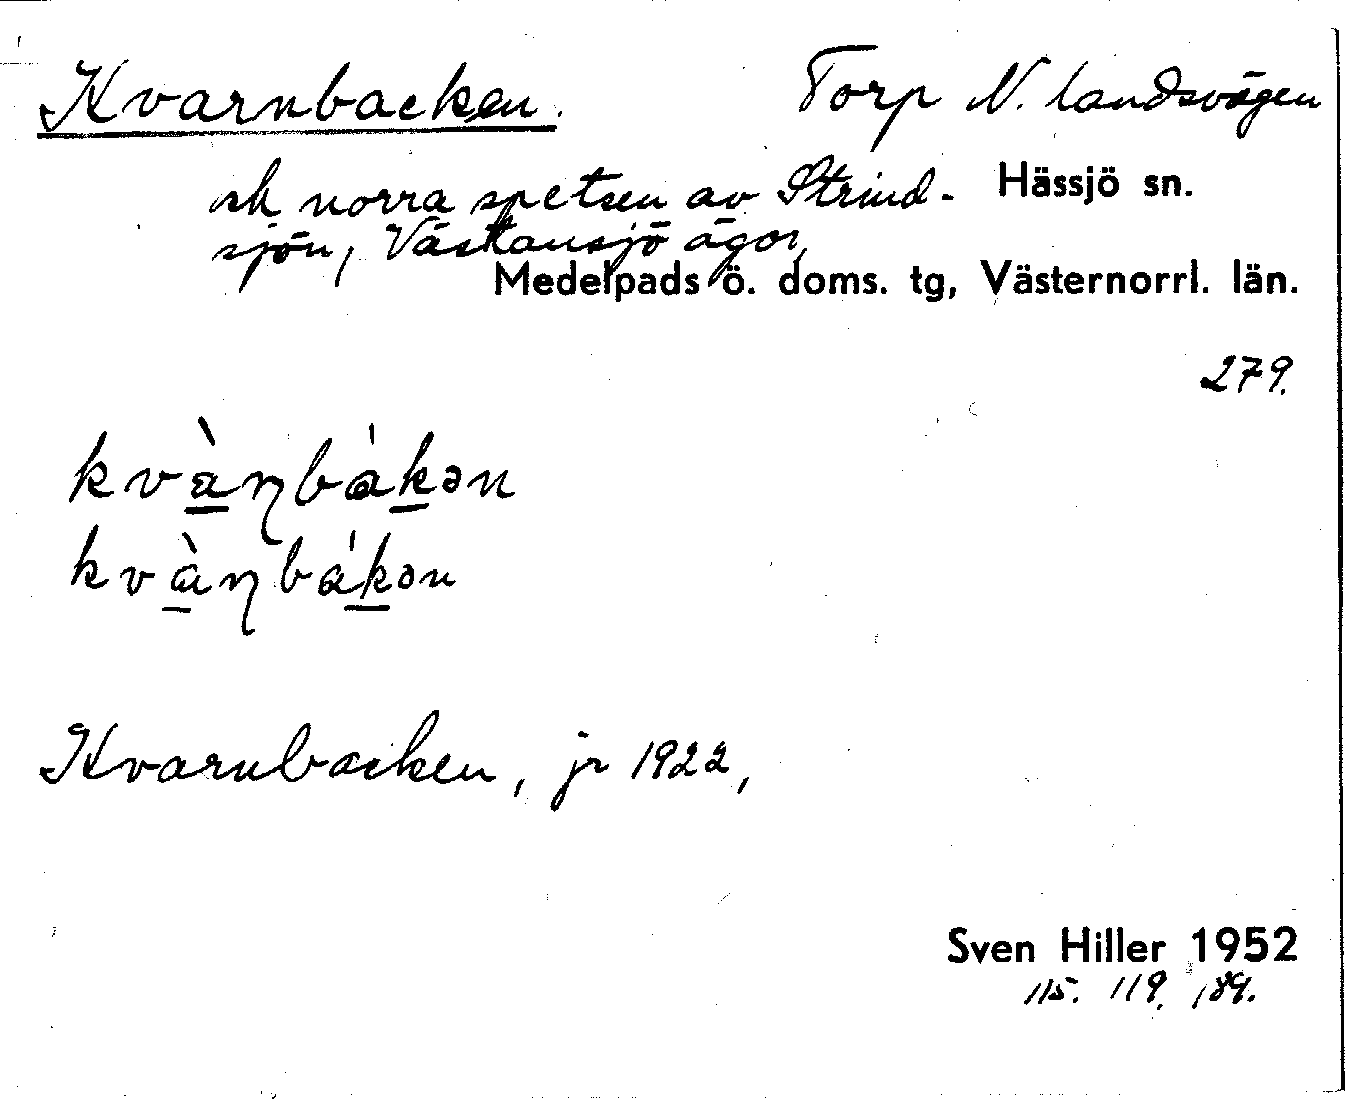 Kvarnbacken.
Torp N. landsvägen
norra spetsen av Strind-
Hässjö sn.
sjön, Västansjö ägor,
Medelpads ö. doms. tg, Västernorrl. län.
279.
kvàɳbákən
kvàɳbákən
Kvarnbacken, jr 1922,
Sven Hiller 1952
115. 119, 189.